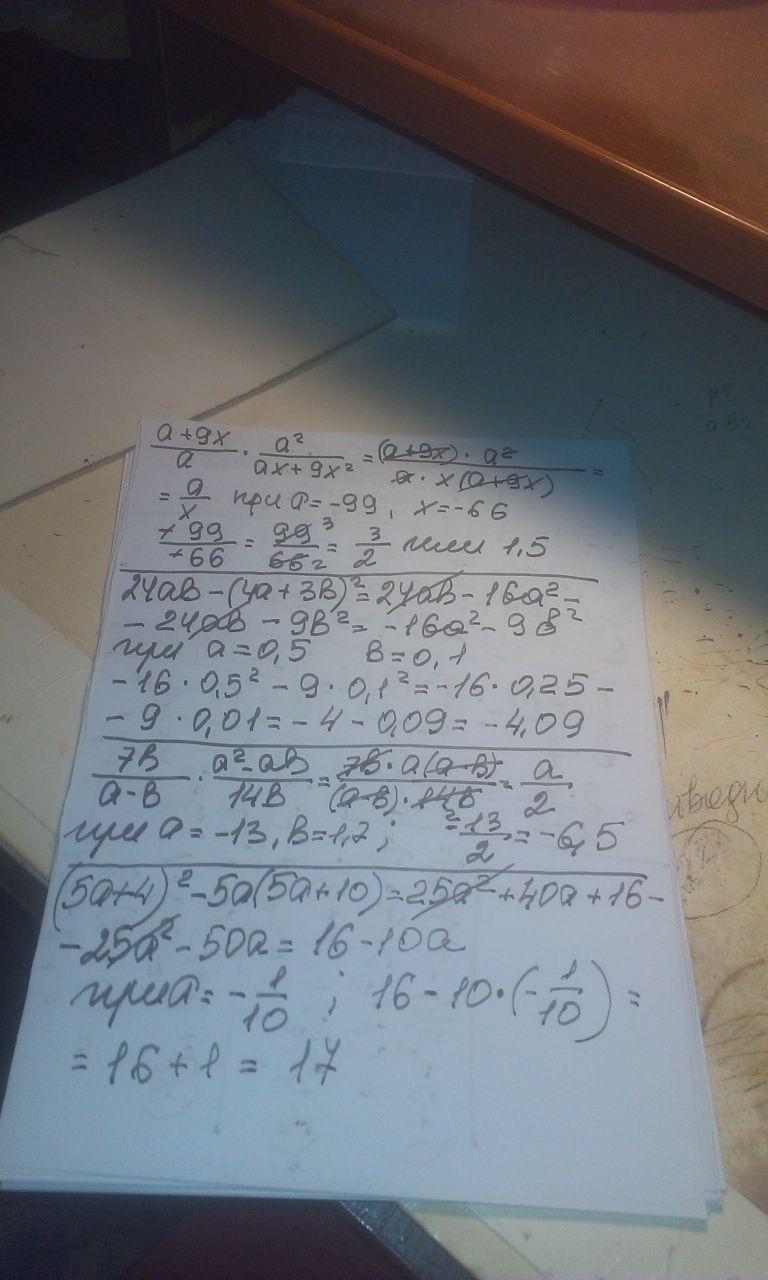 (a+9x)/a · a²/(ax+9x²) = ((a+9x) · a²)/(a · x(a+9x)) =
= a/x при a=-99, x=-66
-99/-66 = 99³/66₂ = 3/2 или 1,5
24ab-(4a+3b)²=24ab-16a²-
-24ab-9b²=-16a²-9b²
при a=0,5 b=0,1
-16·0,5²-9·0,1²=-16·0,25-
-9·0,01=-4-0,09=-4,09
7b/(a-b) · (a²-ab)/14b = (7b·a(a-b))/((a-b)·14b) = a/2
при a=-13, b=1,7; -13/2=-6,5
(5a+4)²-5a(5a+10)=25a²+40a+16-
-25a²-50a=16-10a
при a=-1/10; 16-10·(-1/10)=
=16+1=17